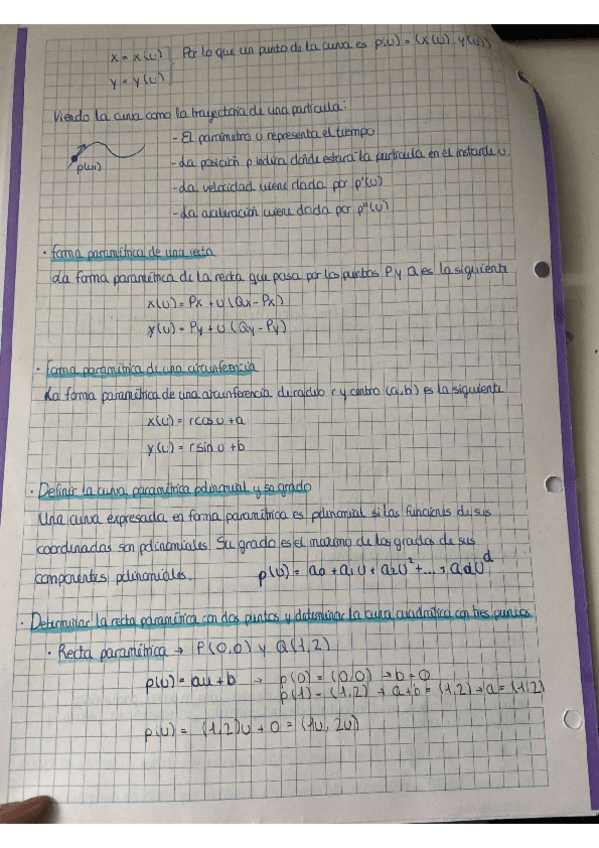 x = x(u) } Por lo que un punto de la curva es p(u) = (x(u), y(u))
y = y(u)
Viendo la curva como la trayectoria de una partícula:
- El parámetro u representa el tiempo
p(u)
- La posición p indica dónde estará la partícula en el instante u.
- La velocidad viene dada por p'(u)
- La aceleración viene dada por p''(u)
· Forma paramétrica de una recta
La forma paramétrica de la recta que pasa por los puntos P y Q es la siguiente
x(u) = Px + u(Qx - Px)
y(u) = Py + u(Qy - Py)
· Forma paramétrica de una circunferencia
La forma paramétrica de una circunferencia de radio r y centro (a,b) es la siguiente
x(u) = r cos u + a
y(u) = r sin u + b
· Definir la curva paramétrica polinomial y su grado
Una curva expresada en forma paramétrica es polinomial si las funciones de sus
coordenadas son polinomiales. Su grado es el máximo de los grados de sus
componentes polinomiales. p(u) = a₀ + a₁u + a₂u² + ... + a_d u^d
· Determinar la recta paramétrica con dos puntos y determinar la curva cuadrática con tres puntos
· Recta paramétrica → P(0,0) y Q(1,2)
p(u) = au + b → p(0) = (0,0) → b = 0
p(1) = (1,2) → a + b = (1,2) → a = (1,2)
p(u) = (1,2)u + 0 = (1u, 2u)